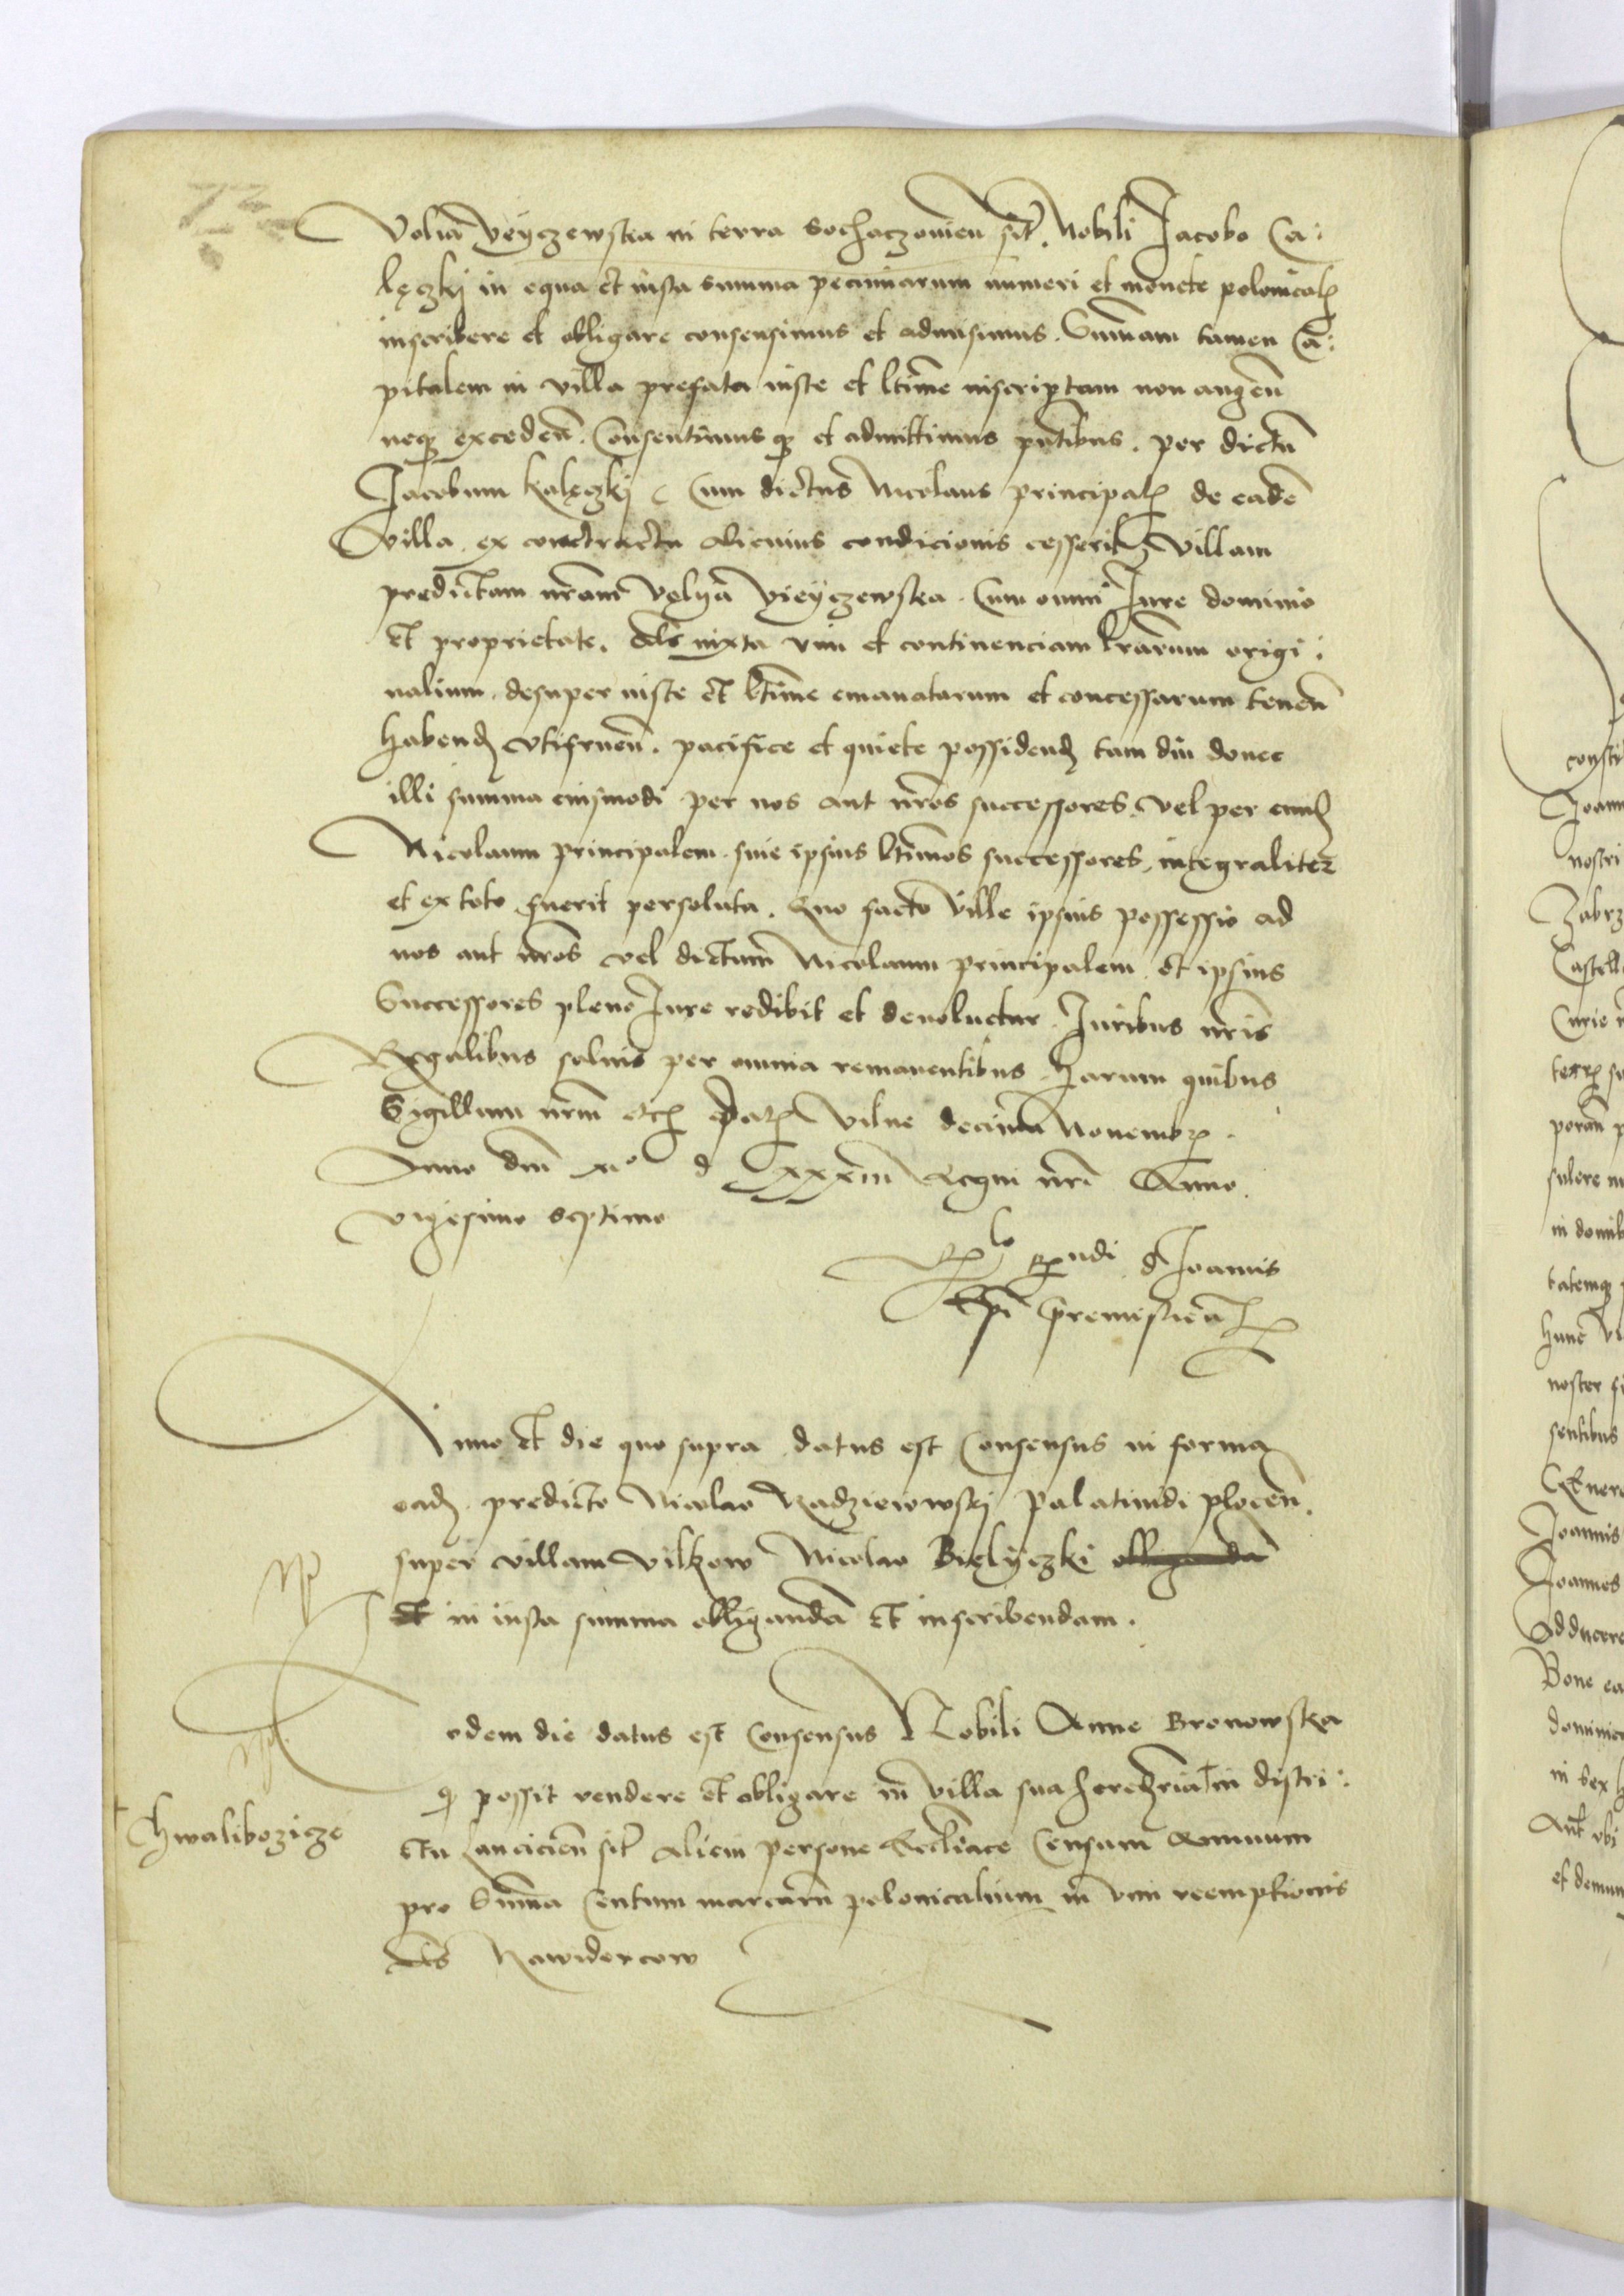 Volia Veyczewska in terra Sochaczovien sit. Nobili Jacobo Ca:
lęczkj in equa et iusta summa pecuniarum numeri et monete polonical
inscribere et obligare consensimus et admisimus. Summam tamen Ca:
pitalem in villa prefata iuste et ltime inscriptam non augen
neqz exceden. Consentimusqz et admittimus pntibus. per dictu
Jacobum Kalęczkj Cum dictus Nicolaus principalis de eade
Villa ex contractu alicuius condicionis cesserit Villam
predictam nram Volya Vieyczewska. Cum omni Jure dominio
et proprietate. als iuxta vim et continenciam lrarum origi:
nalium desuper iuste et ltime emanatarum et concessarum tenen
habend vtifruen. pacifice et quiete possidend tam diu donec
illi summa eiusmodi per nos aut nros successores vel per eund
Nicolaum principalem siue ipsius ltimos successores integraliter
et ex toto fuerit persoluta. Quo facto Ville ipsius possessio ad
nos aut nros vel dictum Nicolaum principalem et ipsius
Successores pleno Jure redibit et devoluetur. Juribus nris
Regalibus salvis per omnia remanentibus. Harum quibus
Sigillum nrm etc Dat Vilne decima Novembr.
Anno dni Mo d xxxiii Regni nri Anno
vigesimo septimo
Rlo Rndi d Joannis
Epi premislien
Anno et die quo supra datus est Consensus in forma
ead. predicto Nicolao Radziewowskj palatinidi plocen
super villam Vilkow Nicolao Bielyczki obliganda
et in iusta summa obliganda et inscribendam.
Eodem die datus est Consensus Nobili Anne Bronowska
q possit vendere et obligare in villa sua hereditria in distri:
Chwalibozicze
ctu Lancicien sit Alicui persone Ecclíace Censum Annuum
pro Summa Centum marcarum polonicalium in vim reemptionis
als Nawidercow